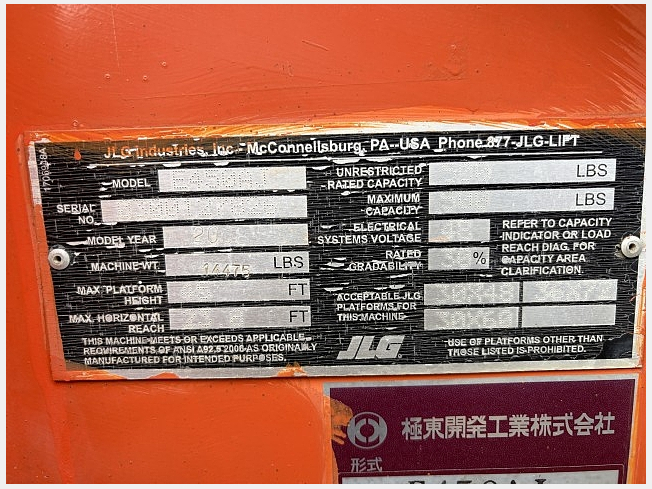 JLG Industries, Inc - McConnellsburg, PA--USA Phone 877-JLG-LIFT
MODEL
SERIAL
NO.
MODEL YEAR
MACHINE WT. 14475 LBS
MAX PLATFORM
HEIGHT FT
MAX HORIZONTAL
REACH FT
THIS MACHINE MEETS OR EXCEEDS APPLICABLE
REQUIREMENTS OF ANSI A92.5 2006 AS ORIGINALLY
MANUFACTURED FOR INTENDED PURPOSES.
UNRESTRICTED
RATED CAPACITY LBS
MAXIMUM
CAPACITY LBS
ELECTRICAL
SYSTEMS VOLTAGE
RATED
GRADABILITY %
REFER TO CAPACITY
INDICATOR OR LOAD
REACH DIAG. FOR
CAPACITY AREA
CLARIFICATION.
ACCEPTABLE JLG
PLATFORMS FOR
THIS MACHINE
JLG
USE OF PLATFORMS OTHER THAN
THOSE LISTED IS PROHIBITED.
極東開発工業株式会社
形式